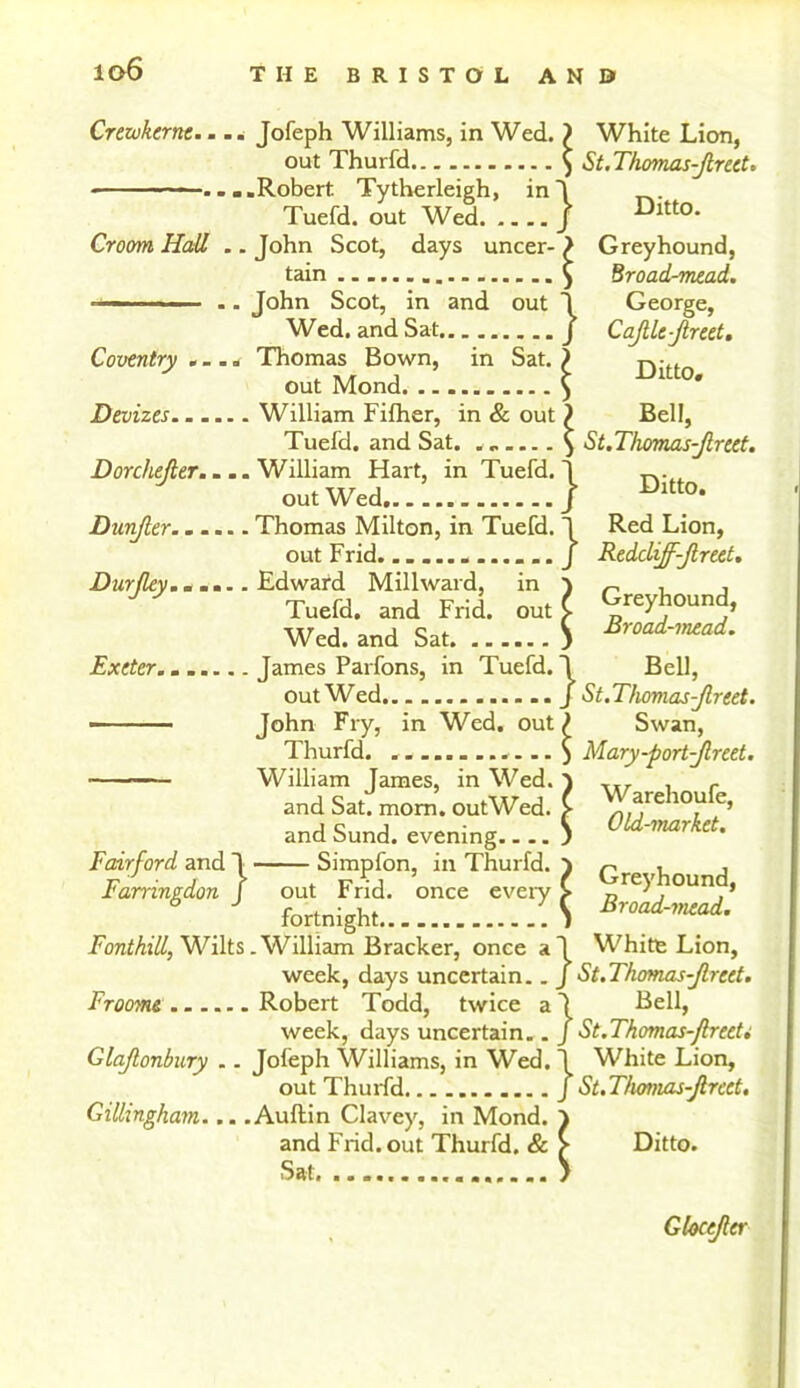 106 THE BRISTOL AND
Crewkerne.... Joſeph Williams, in Wed. } White Lion,
out Thurſd............ } St. Thomas-ſtreet.
———....Robert Tytherleigh, in }
Tueſd. out Wed...... } Ditto.
Croom Hall .. John Scot, days uncer- } Greyhound,
tain ............... } Broad-mead.
——— .. John Scot, in and out } George,
Wed. and Sat......... } Caſtle-ſtreet.
Coventry .... Thomas Bown, in Sat. }
out Mond............ } Ditto.
Devizes...... William Fiſher, in & out } Bell,
Tueſd. and Sat. ...... } St. Thomas-ſtreet.
Dorcheſter.... William Hart, in Tueſd. }
out Wed............. } Ditto.
Dunſter...... Thomas Milton, in Tueſd. } Red Lion,
out Frid............. } Redcliff-ſtreet.
Durſley...... Edward Millward, in }
Tueſd. and Frid. out } Greyhound,
Wed. and Sat. ...... } Broad-mead.
Exeter....... James Parſons, in Tueſd. } Bell,
out Wed............. } St. Thomas-ſtreet.
——— John Fry, in Wed. out } Swan,
Thurſd. ............ } Mary-port-ſtreet.
——— William James, in Wed. }
and Sat. morn. outWed. } Warehouſe,
and Sund. evening.... } Old-market.
Fairford and } ——— Simpſon, in Thurſd. }
Farringdon } out Frid. once every } Greyhound,
fortnight............. } Broad-mead.
Fonthill, Wilts. William Bracker, once a } White Lion,
week, days uncertain.. } St. Thomas-ſtreet.
Froome ...... Robert Todd, twice a } Bell,
week, days uncertain.. } St. Thomas-ſtreet.
Glaſtonbury .. Joſeph Williams, in Wed. } White Lion,
out Thurſd........... } St. Thomas-ſtreet.
Gillingham.... Auſtin Clavey, in Mond. }
and Frid. out Thurſd. & } Ditto.
Sat. ................ }
Gloceſter